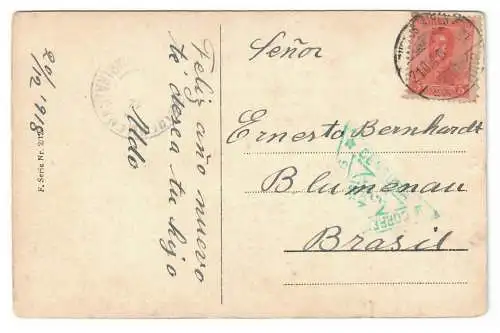 20/12 1918
Feliz año nuevo
te desea tu hijo
Aldo
F. Serie Nr.
Señor
Ernesto Bernhardt
Blumenau
Brasil